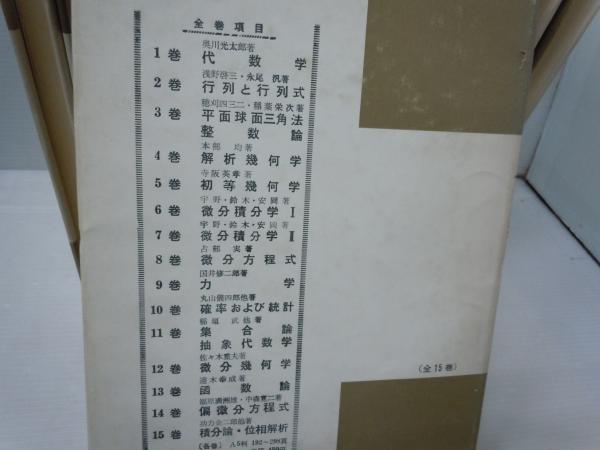 全巻項目
奥川光太郎著
1巻 代数学
浅野啓三・永尾 汎著
2巻 行列と行列式
穂刈四三二・稲葉栄次著
3巻 平面球面三角法
整数論
本部 均著
4巻 解析幾何学
寺阪英孝著
5巻 初等幾何学
宇野・鈴木・安岡著
6巻 微分積分学Ⅰ
宇野・鈴木・安岡著
7巻 微分積分学Ⅱ
占部 実著
8巻 微分方程式
国井修二郎著
9巻 力学
丸山儀四郎他著
10巻 確率および統計
稲垣 武他著
11巻 集合論
抽象代数学
佐々木重夫著
12巻 微分幾何学
遠木幸成著
13巻 函数論
福原満洲雄・中森寛二著
14巻 偏微分方程式
功力金二郎他著
15巻 積分論・位相解析
(各巻) A5判 192～298頁
(全15巻)